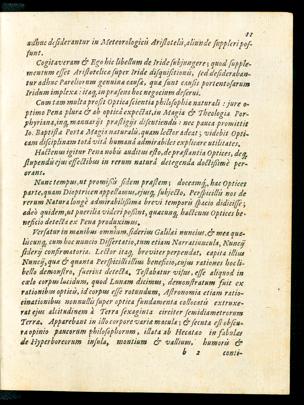 11
adhuc desiderantur in Meteorologicis Aristotelis, aliunde suppleri pos-
sunt.
Cogitaveram & Ego hic libellum de Iride subjungere; quod supple-
mentum esset Aristotelica super Iride disquisitionis, sed desideraban-
tur adhuc Pareliorum genuina causæ, quæ sunt consis portentosarum
Iridum implexa: itaq, in præsens hoc negocium deserui.
Cum tam multa prosit Optica scientia philosophiæ naturali: jure o-
ptimo Pena plura & ab optica expectat, in Magia & Theologia Por-
phyriana, inq, manuarijs præstigijs discutiendis: nec pauca promittit
Io. Baptista Porta Magia naturalis, quam lector adeat; videbit Opti-
cam disciplinam totâ vitâ humanâ admirabiles explicare utilitates.
Hactenus igitur Pena nobis auditus esto, de præstantia Optices, deq,
stupendis ejus effectibus in rerum naturâ detegenda doctissimè per-
orans.
Nunc tempus, ut promissis fidem præstem; doceamq, hac Optices
parte, quam Dioptricen appellamus, ejusq, subjecto, Perspicillis nos de
rerum Natura longè admirabilissima brevi temporis spacio didicisse;
adeò quidem, ut puerilia videri possint, quacunq, hactenus Optices be-
neficio detecta ex Pena produximus.
Versatur in manibus omnium, siderius Galilæi nuncius, & mea qua-
liscunq, cum hoc nuncio Dissertatio, tum etiam Narratiuncula, Nuncij
siderij confirmatoria. Lector itaq, breviter perpendat, capita illius
Nuncij, quæ & quanta Perspicilli illius beneficio, cujus rationes hoc li-
bello demonstro, fuerint detecta, Testabatur visus, esse aliquod in
cœlo corpus lucidum, quod Lunam dicimus, demonstratum fuit ex
rationibus opticis, id corpus esse rotundum, Astronomia etiam ratio-
cinationibus nonnullis super optica fundamenta collocatis extruxe-
rat ejus altitudinem à Terra sexaginta circiter semidiametrorum
Terræ. Apparebant in illo corpore variæ maculæ; & secuta est obscu-
ra opinio paucorum philosophorum, illata ab Hecatæo in fabulas
de Hyperboreorum insula, montium & vallium, humoris &
b 2 conti-